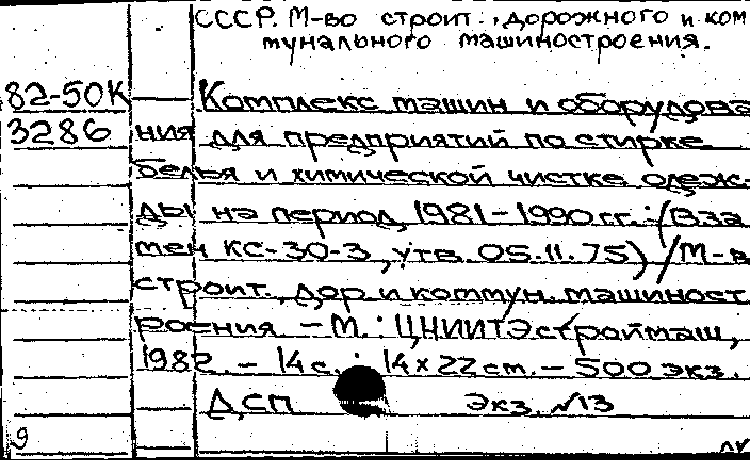 СССР. М-во строит., дорожного и ком
мунального машиностроения.
82-50К Комплекс машин и оборудова
3286 ния для предприятий по стирке
белья и химической чистке одеж-
ды на период 1981-1990 гг. : (Вза
мен КС-30-3, утв. 05.11.75) / М-в
строит., дор и коммун. машиност
роения. - М. : ЦНИИТЭстроймаш,
1982. - 14 с. : 14 х 22 см. - 500 экз.
ДСП Экз. №3
9